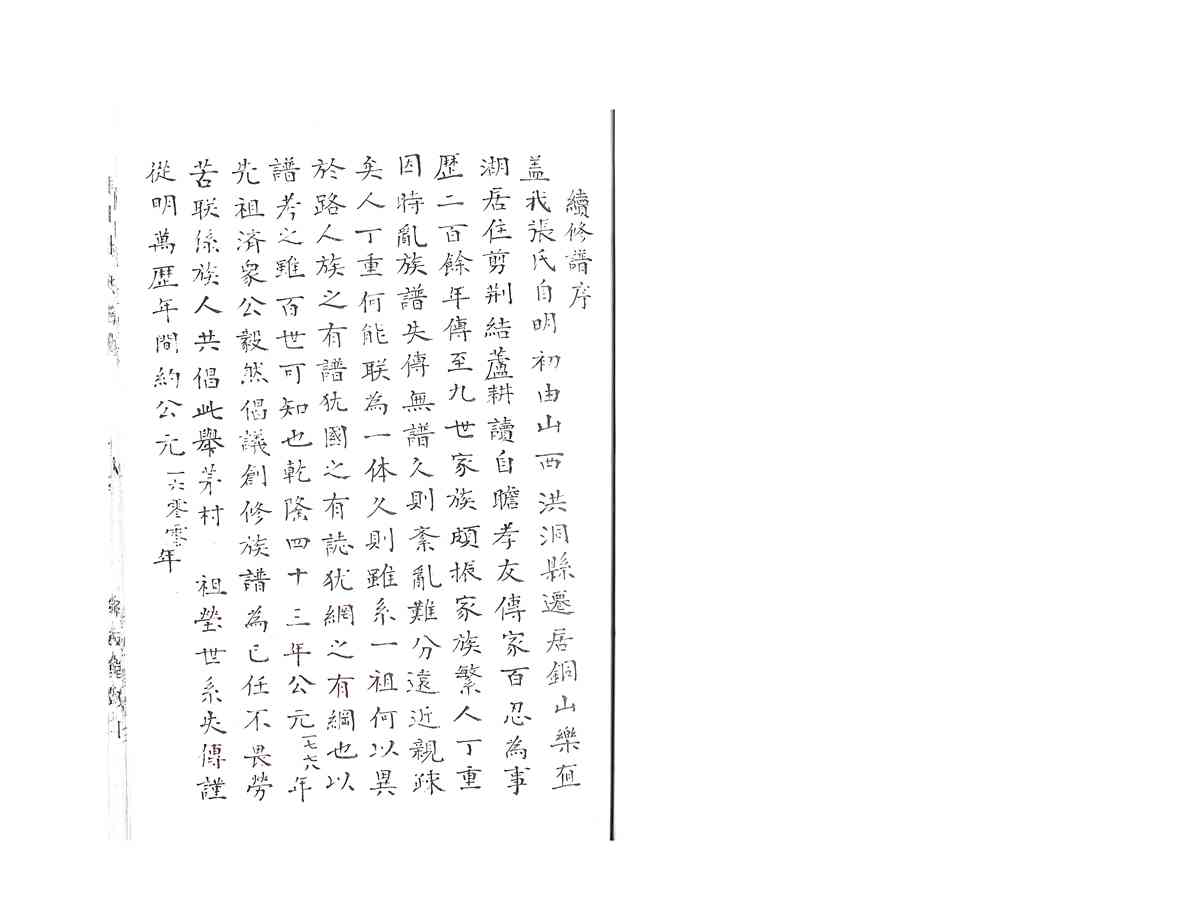 續修譜序
盖我張氏自明初由山西洪洞縣遷居銅山樂亙
湖居住剪荆結蘆耕讀自瞻孝友傳家百忍為事
歷二百餘年傳至九世家族頗振家族繁人丁重
因時亂族譜失傳無譜久則紊亂難分遠近親疎
矣人丁重何能联為一体久則雖系一祖何以異
於路人族之有譜犹國之有誌犹網之有綱也以
譜考之雖百世可知也乾隆四十三年公元一七六年
先祖済衆公毅然倡議創修族譜為已任不畏勞
苦联係族人共倡此舉茅村 祖塋世系失傳謹
從明萬歷年間約公元一六零零年